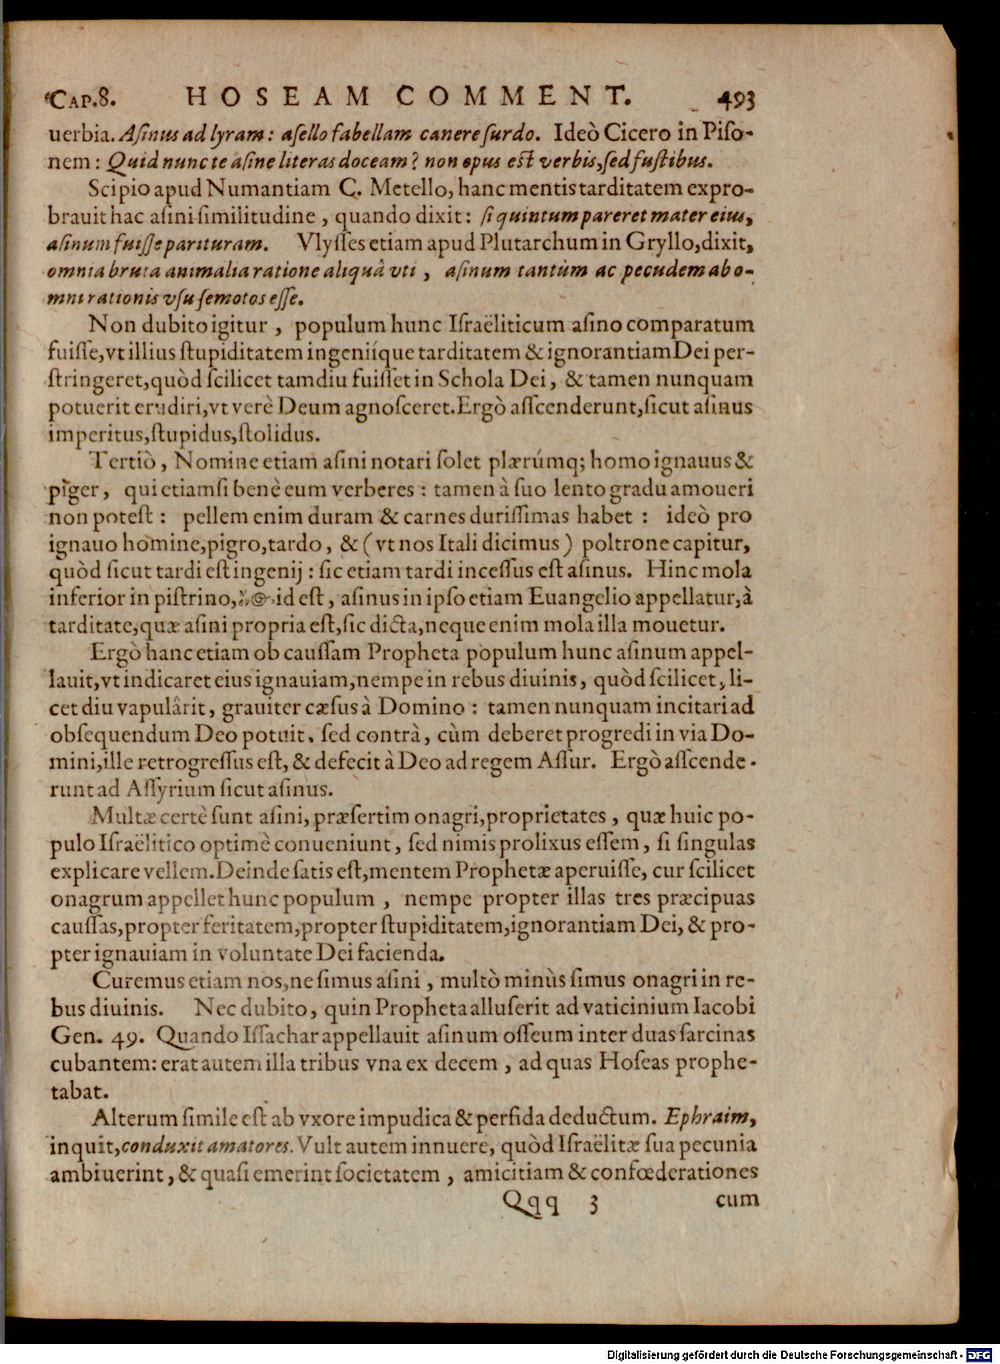 CAP.8. HOSEAM COMMENT. 493
uerbia. Asinus ad lyram: asello fabellam canere surdo. Ideò Cicero in Piso-
nem: Quid nunc te asine literas doceam? non opus est verbis, sed fustibus.
Scipio apud Numantiam C. Metello, hanc mentis tarditatem expro-
brauit hac asini similitudine, quando dixit: si quintum pareret mater eius,
asinum fuisse parituram. Vlysses etiam apud Plutarchum in Gryllo, dixit,
omnia bruta animalia ratione aliquâ vti, asinum tantùm ac pecudem ab o-
mni rationis vsu semotos esse.
Non dubito igitur, populum hunc Israëliticum asino comparatum
fuisse, vt illius stupiditatem ingeniíque tarditatem & ignorantiam Dei per-
stringeret, quòd scilicet tamdiu fuisset in Schola Dei, & tamen nunquam
potuerit erudiri, vt verè Deum agnosceret. Ergò asscenderunt, sicut asinus
imperitus, stupidus, stolidus.
Tertiò, Nomine etiam asini notari solet plærúmq; homo ignauus &
piger, qui etiamsi benè eum verberes: tamen à suo lento gradu amoueri
non potest: pellem enim duram & carnes durissimas habet: ideò pro
ignauo homine, pigro, tardo, & (vt nos Itali dicimus) poltrone capitur,
quòd sicut tardi est ingenij: sic etiam tardi incessus est asinus. Hinc mola
inferior in pistrino, id est, asinus in ipso etiam Euangelio appellatur, à
tarditate, quæ asini propria est, sic dicta, neque enim mola illa mouetur.
Ergò hanc etiam ob caussam Propheta populum hunc asinum appel-
lauit, vt indicaret eius ignauiam, nempe in rebus diuinis, quòd scilicet, li-
cet diu vapulârit, grauiter cæsus à Domino: tamen nunquam incitari ad
obsequendum Deo potuit, sed contrà, cùm deberet progredi in via Do-
mini, ille retrogressus est, & defecit à Deo ad regem Assur. Ergò asscende-
runt ad Assyrium sicut asinus.
Multæ certè sunt asini, præsertim onagri, proprietates, quæ huic po-
pulo Israëlitico optimè conueniunt, sed nimis prolixus essem, si singulas
explicare vellem. Deinde satis est, mentem Prophetæ aperuisse, cur scilicet
onagrum appellet hunc populum, nempe propter illas tres præcipuas
caussas, propter feritatem, propter stupiditatem, ignorantiam Dei, & pro-
pter ignauiam in voluntate Dei facienda.
Curemus etiam nos, ne simus asini, multò minùs simus onagri in re-
bus diuinis. Nec dubito, quin Propheta alluserit ad vaticinium Iacobi
Gen. 49. Quando Issachar appellauit asinum osseum inter duas sarcinas
cubantem: erat autem illa tribus vna ex decem, ad quas Hoseas prophe-
tabat.
Alterum simile est ab vxore impudica & perfida deductum. Ephraim,
inquit, conduxit amatores. Vult autem innuere, quòd Israëlitæ sua pecunia
ambiuerint, & quasi emerint societatem, amicitiam & confœderationes
Qqq 3 cum
Digitalisierung gefördert durch die Deutsche Forschungsgemeinschaft - DFG